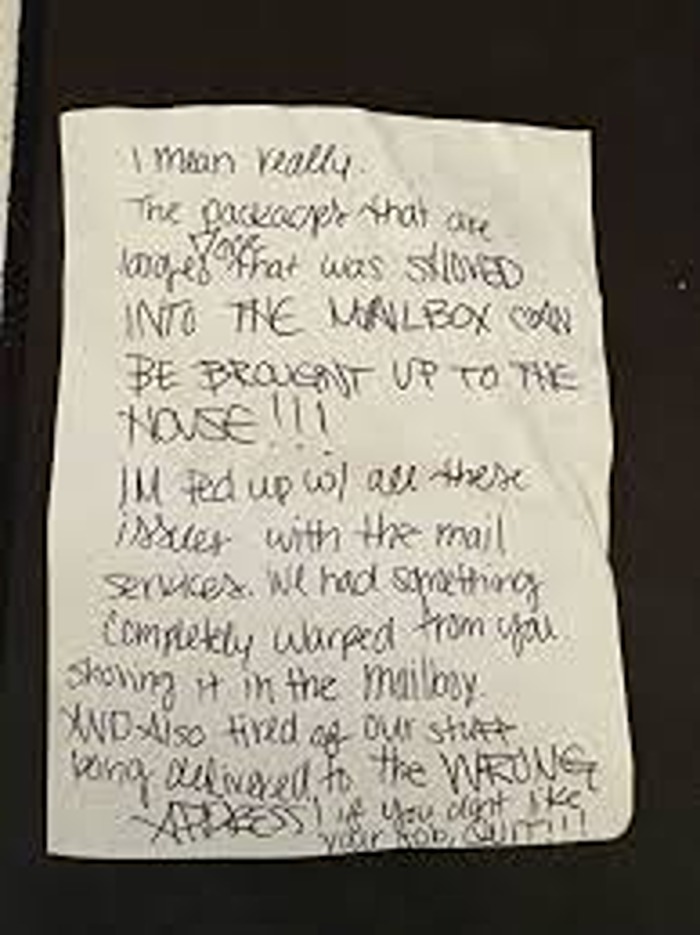 I mean really.
The packages that are
larger than that was SHOVED
INTO THE MAILBOX CAN
BE BROUGHT UP TO THE
HOUSE!!!
IM fed up w/ all these
issues with the mail
services. We had something
completely warped from you
shoving it in the mailbox.
AND Also tired of our stuff
being delivered to the WRONG
ADDRESS! if you dont like
your job, QUIT!!!